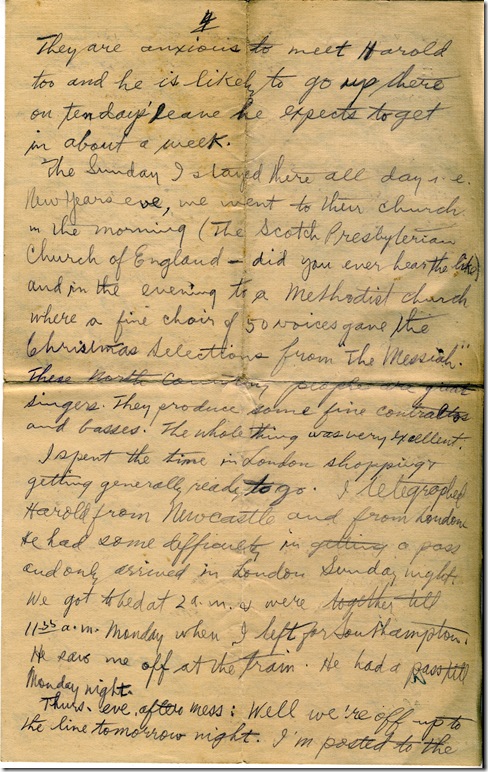 4
They are anxious to meet Harold
too and he is likely to go up there
on ten days' leave he expects to get
in about a week.
The Sunday I stayed there all day i.e.
New Years eve, we went to their church
in the morning (The Scotch Presbyterian
Church of England – did you ever hear the like)
and in the evening to a Methodist church
where a fine choir of 50 voices gave the
Christmas Selections from "The Messiah."
These North Country people are great
singers. They produce some fine contraltos
and basses. The whole thing was very excellent.
I spent the time in London shopping &
getting generally ready to go. I telegraphed
Harold from Newcastle and from London
He had some difficulty in getting a pass
and only arrived in London Sunday night.
We got to bed at 2 a.m. & were together till
11 35 a.m. Monday when I left for Southampton.
He saw me off at the train. He had a pass till
Monday night.
Thurs. eve, after mess: Well we're off up to
the line tomorrow night. I'm posted to the